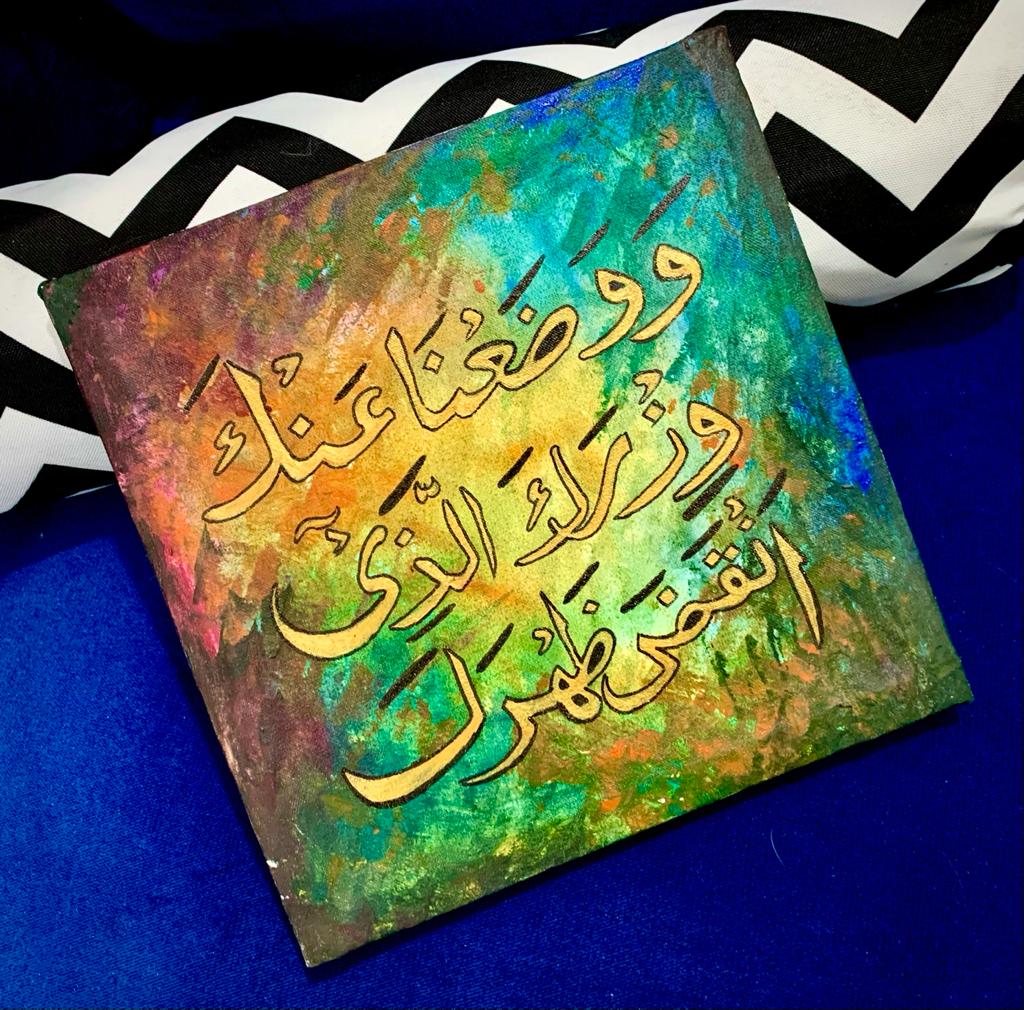 وَوَضَعْنَا عَنْكَ
وِزْرَكَ الَّذِىٓ
اَنْقَضَ ظَهْرَكَ